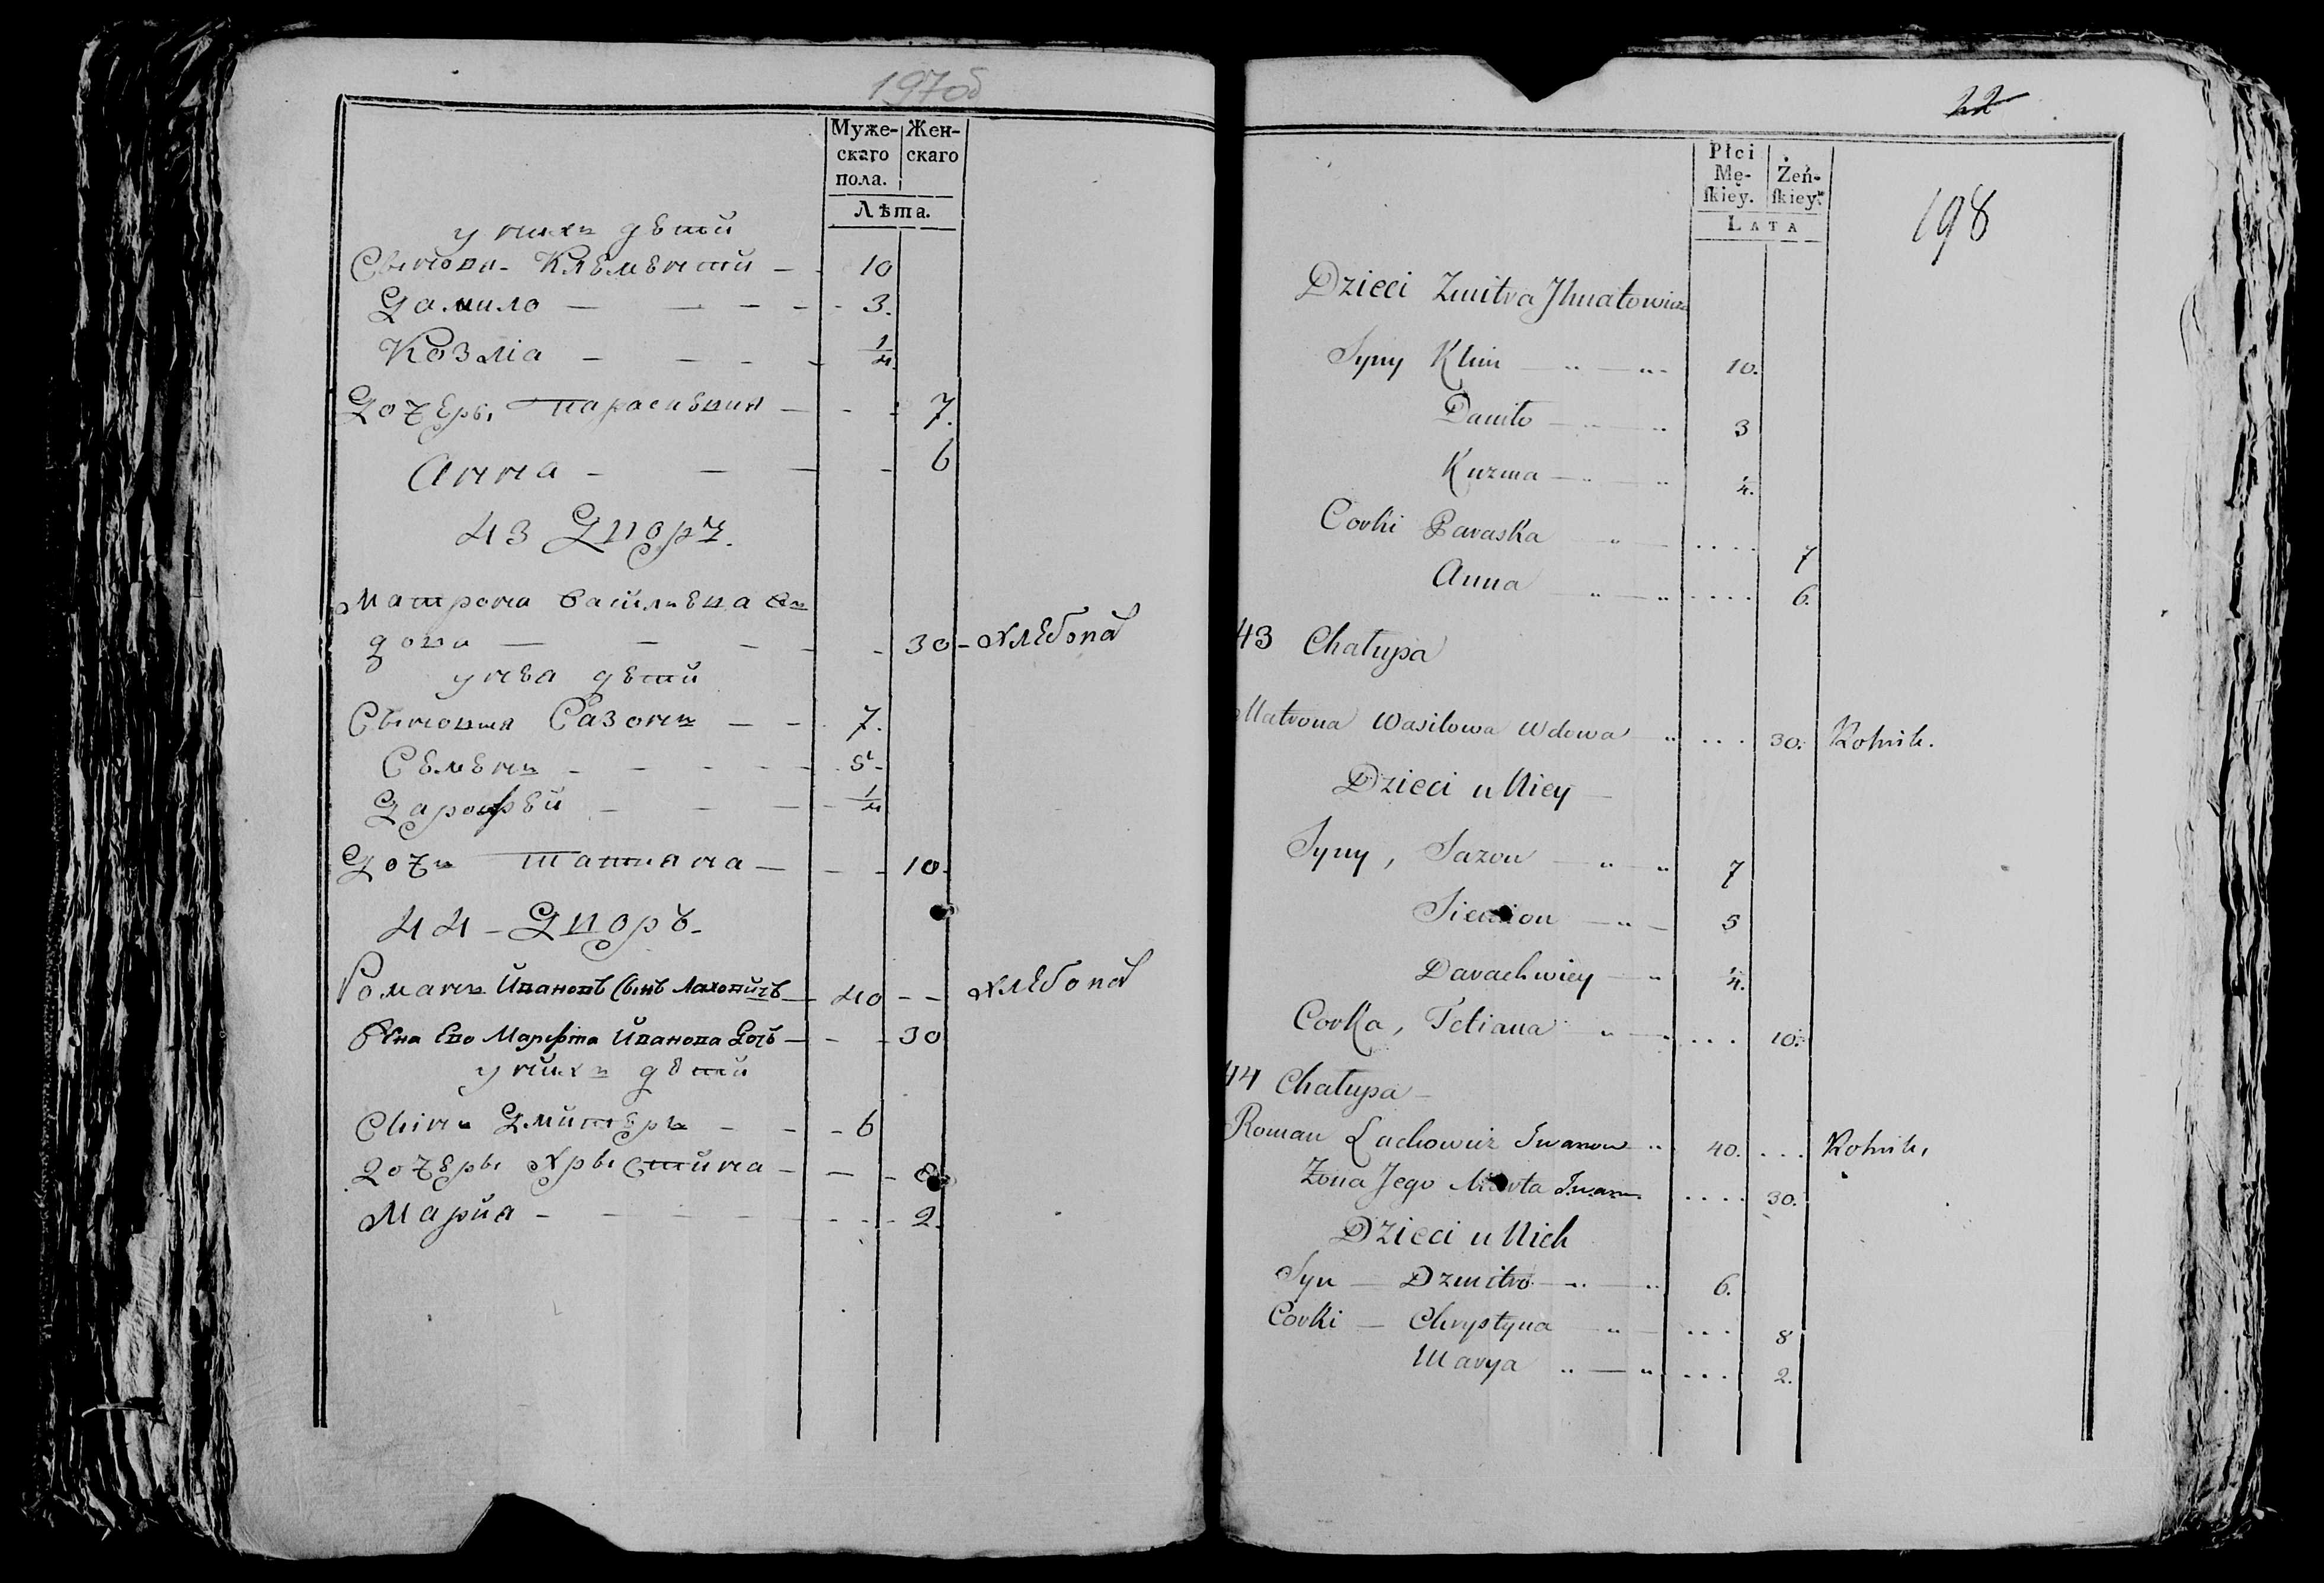 197об
Муже- Жен-
скаго скаго
пола.
Лѣта.
у нихъ дѣти
Сыновя Клементий 10
Данило 3.
Козміа 1/4.
Дочеры Парасцевия 7.
Анна 6
43 Дворъ.
Матрона Василева Въ
дова 30 Хлебопа
у нея дѣти
Сыновя Сазонъ 7.
Семенъ 5
Дарофей 1/4
Дочъ Татияна 10.
44 Дворъ.
Романъ Ивановъ Сынъ Лаховичъ 40 Хлебопа
Жена Ево Марфта Иванова Дочъ 30
у нихъ дѣти
Сынъ Дмитеръ 6
Дочеры Хрыстина 8
Марйа 2.
22
198
Płci
Mę- Żeń-
skiéy. skiéy.
LATA
Dzieci Zmitra Ihnatowicza
Syny Klim 10.
Daniło 3
Kuzma 1/4.
Corki Paraska 7
Anna 6.
43 Chałupa
Matrona Wasilowa Wdowa 30. Rolnik.
Dzieci u Niey
Syny, Sazon 7
Siemion 5
Darachwiey 1/4.
Corka, Tetiana 10.
44 Chałupa
Roman Lachowicz Iwanow 40. Rolnik,
Żona Jego Marta Iwan 30.
Dzieci u Nich
Syn Dzmitro 6.
Corki Chrystyna 8
Marya 2.